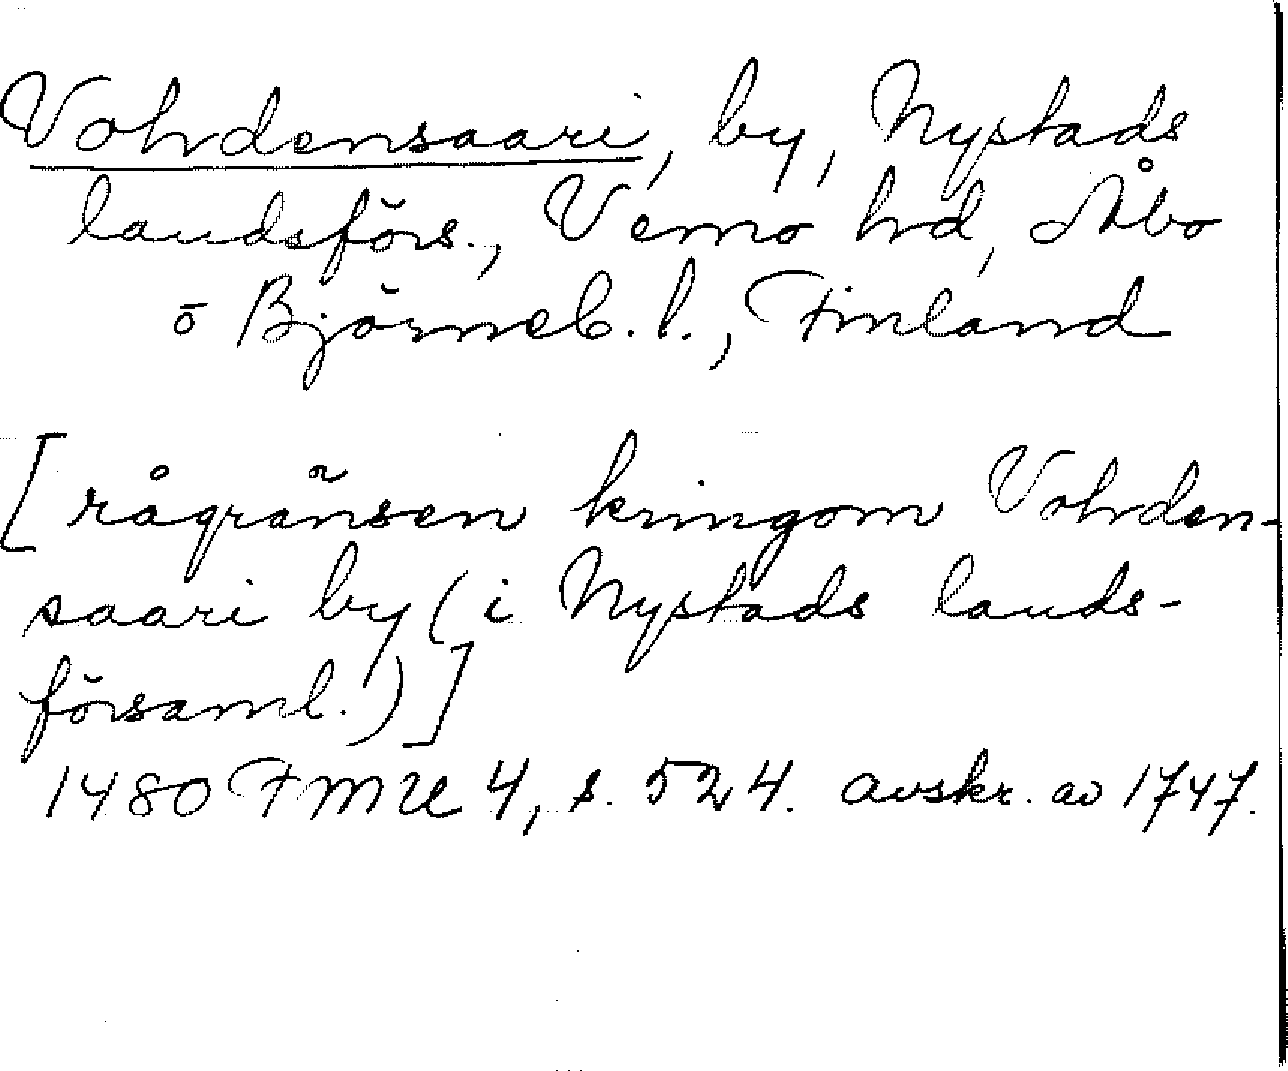 Vohdensaari, by, Nystads
landsförs., Vemo hd, Åbo
o Björneb. l., Finland
[rågränsen kringom Vohden-
saari by (i Nystads lands-
församl.)]
1480 FMU 4, s. 524. avskr. av 1747.